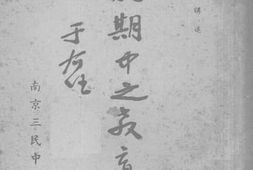 講述
期中之教育
于右任
南京三民中